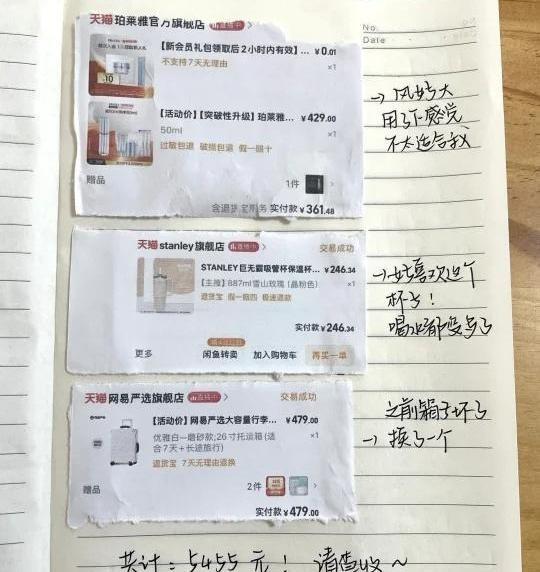 天猫 珀莱雅官方旗舰店 直播中 >
No.
Date
【新会员礼包领取后2小时内有效】... ¥0.01
不支持7天无理由 ×1
【活动价】【突破性升级】珀莱雅... ¥429.00
50ml ×1
过敏包退 破损包退 假一赔十
赠品 1件 >
实付款¥361.48
用了下感觉
不太适合我
天猫 stanley旗舰店 直播中 > 交易成功
STANLEY 巨无霸吸管杯保温杯... ¥246.34
【主推】887ml雪山玫瑰 (晶粉色) ×1
退货宝 假一赔四 极速退款
实付款¥246.34
更多 闲鱼转卖 加入购物车 再买一单
→ 好喜欢这个
杯子!
喝水都变多了
天猫 网易严选旗舰店 直播中 > 交易成功
【活动价】网易严选大容量行李... ¥479.00
优雅白—磨砂款;26寸托运箱 (适 ×1
合7天+长途旅行)
退货宝 7天无理由退换
赠品 2件 >
实付款¥479.00
之前箱子坏了
→ 换了一个
共计:5455元! 请查收~